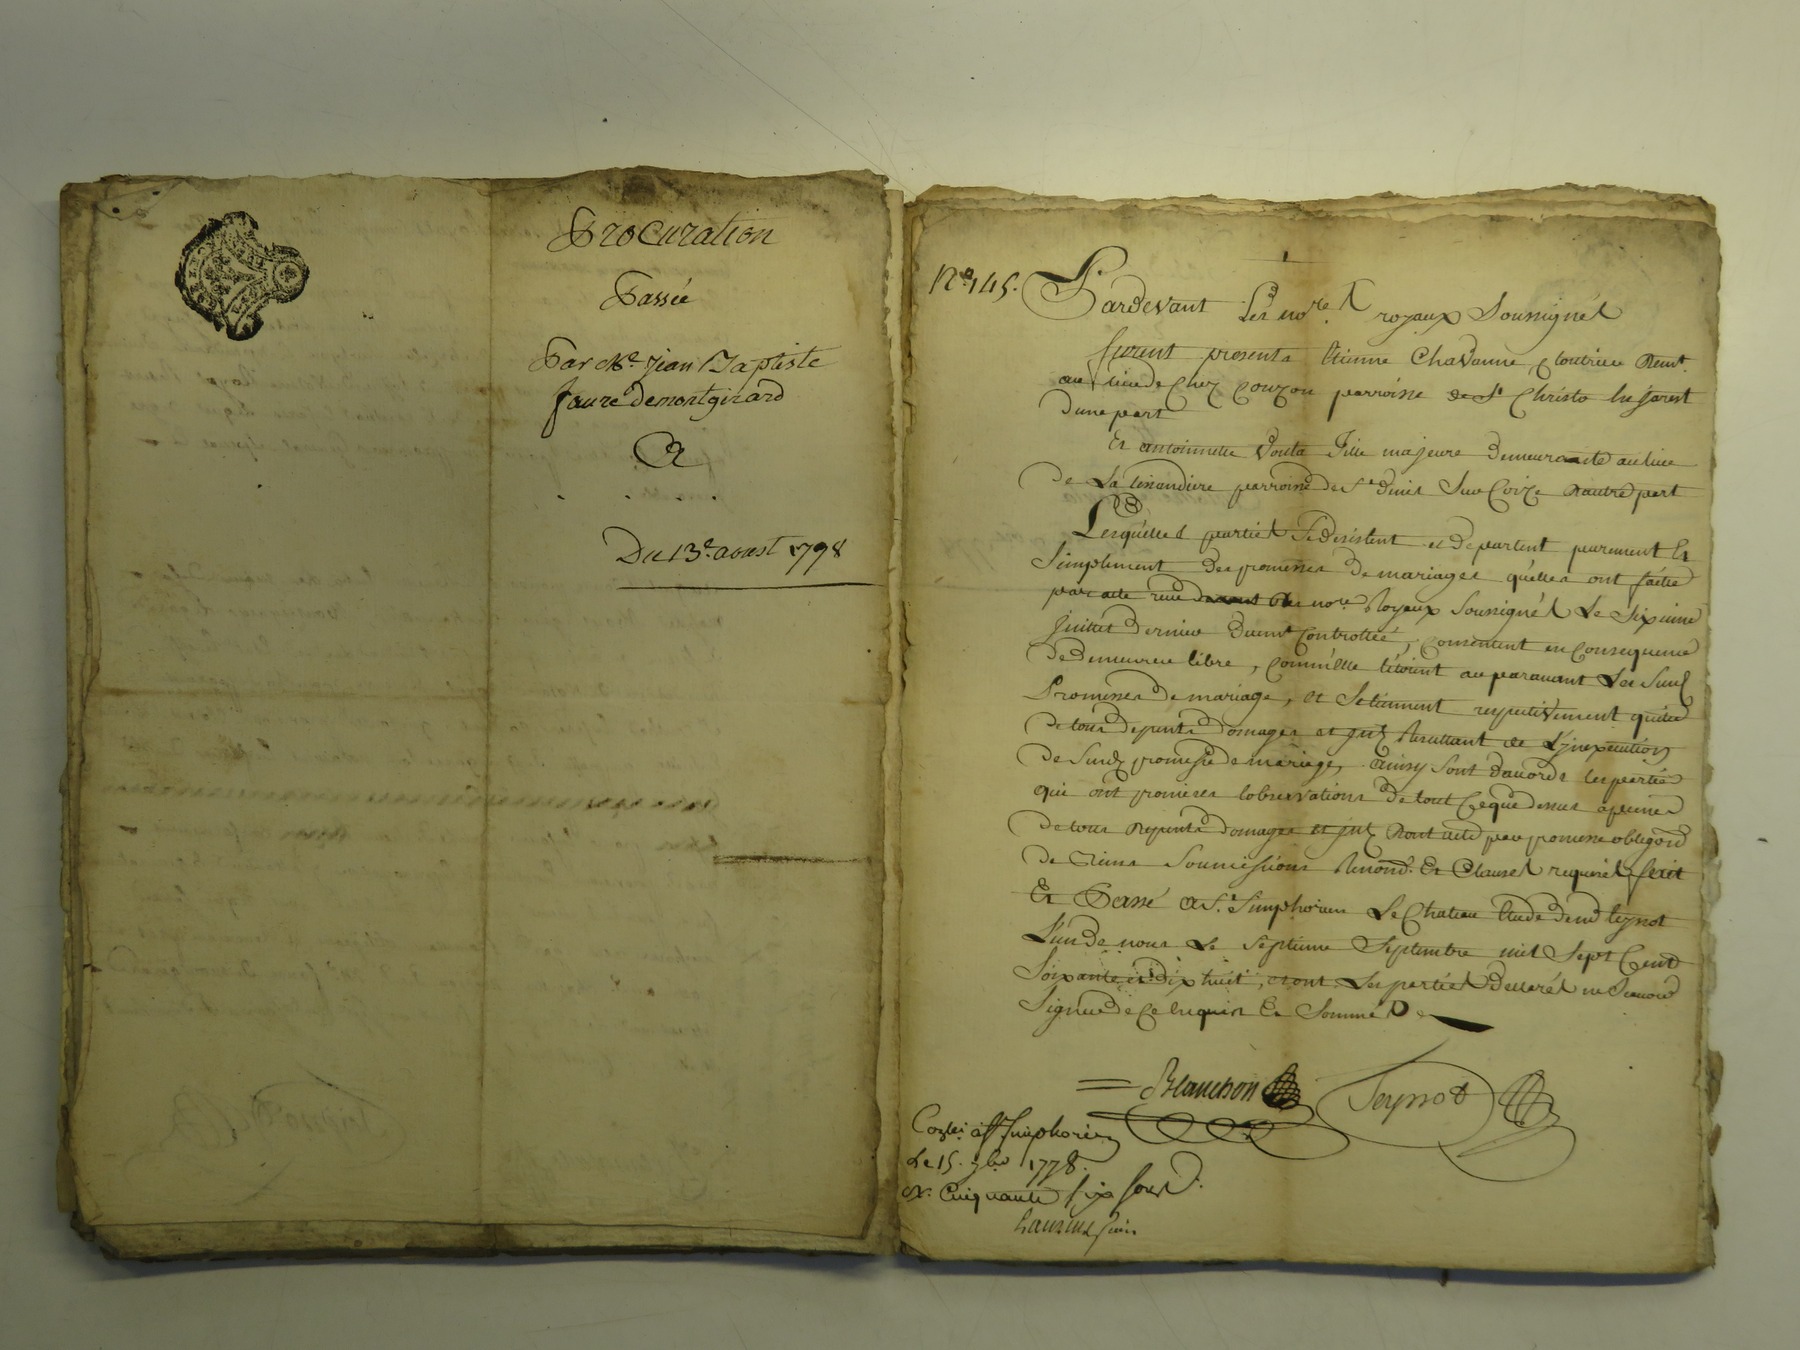 Procuration
Passée
Par Me. jean Baptiste
faure Demontgirard
A
Du 13e. aoust 1778
No. 145.
Pardevant Les nore. royaux Soussignés
furent presents Etienne Chavanne, demt.
au lieu de Chez Couzon parroisse de St Christo en jarest
d'une part
Et antoinette Fille majeure demeurante au lieu
de La parroisse de St denis Sur Coize d'autre part
Lesquelles parties Se desistent et departent purement Et
Simplement des promesses de mariages qu'elles ont faitte
par acte reçu devant les nore. Royaux Soussignés Le Sixieme
juillet dernier duemt Controllée, Consentent en Consequence
de demeurer libre, comm'elle l'étoient auparavant Les Susd
Promesses de mariage, et Se tiennent respectivement quitte
de tous depents domages et jnts Resultant de L'jnexecution
de Susd promesse de mariage, ainsy Sont d'acords les parties
qui ont promises l'observations de tout Ce que dessus a peines
de tous depents domages et jnts dont acte par promesse obligond
de Biens Soumissions Renond. Et Clauses requises fait
Et Passé a St. Simphorien Le Chateau Etude de md teynot
L'un de nous Le Septieme Septembre mil Sept Cent
Soixante et dix huit, et ont Les parties déclarés ne Scavoir
Signer de Ce Enquis Et Sommé
Blanchon Teynot
Conlé. à St Simphorien
Le 15. 7bre 1778.
R. Cinquante Six Sous